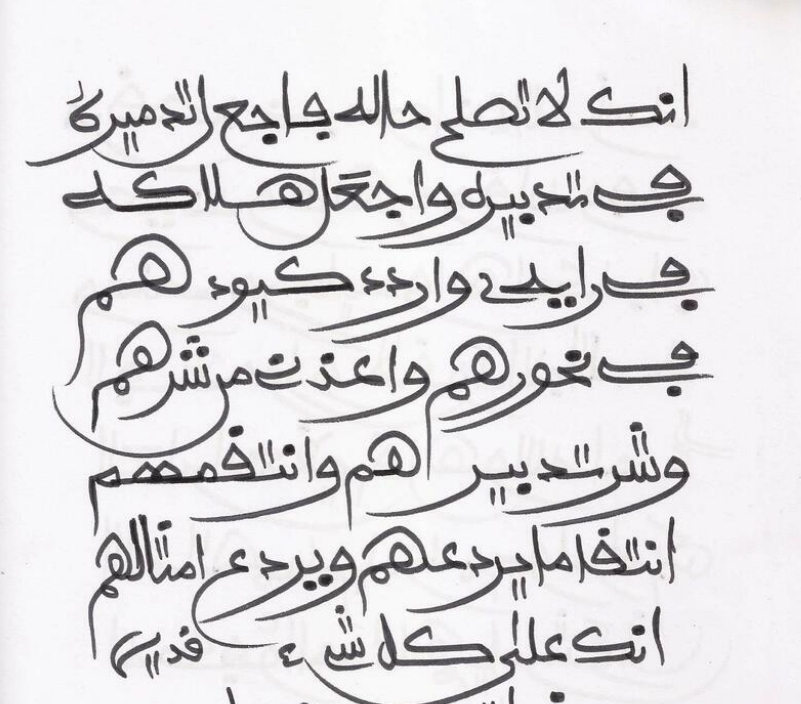 انك لا تصلح حاله فاجعل تدميره
في تدبيره واجعل هلاكه
في رايه واردد كيودهم
في نحورهم واعذني من شرهم
وشر تدبيرهم وانتقم منهم
انتقاما يردعهم ويردع امثالهم
انك على كل شيء قدير